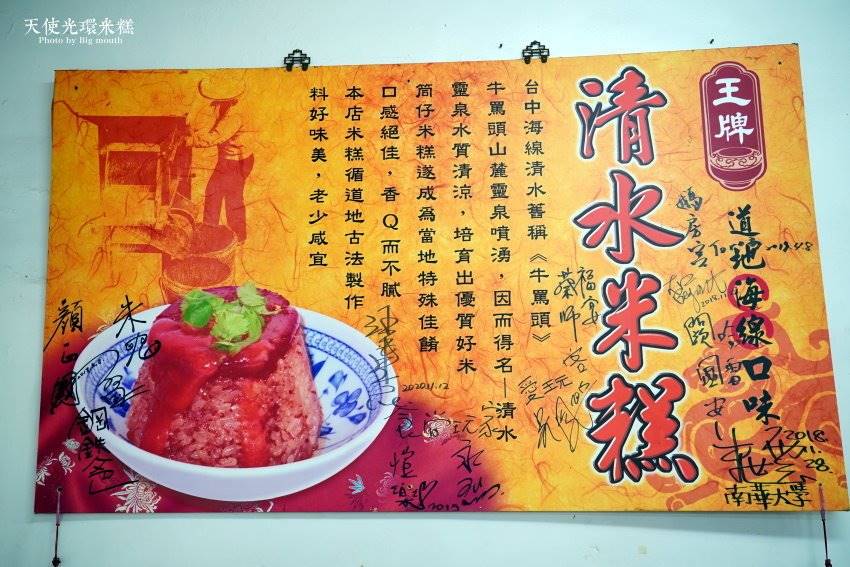 天使光環米糕
Photo by Big mouth
王牌
清水米糕
道地海線口味
台中海線清水舊稱《牛罵頭》
牛罵頭山麓靈泉噴湧，因而得名—清水
靈泉水質清涼，培育出優質好米
筒仔米糕遂成為當地特殊佳餚
口感絕佳，香Q而不膩
本店米糕循道地古法製作
料好味美，老少咸宜
2018.11.28.
南華大學
福宴
2020.11.12